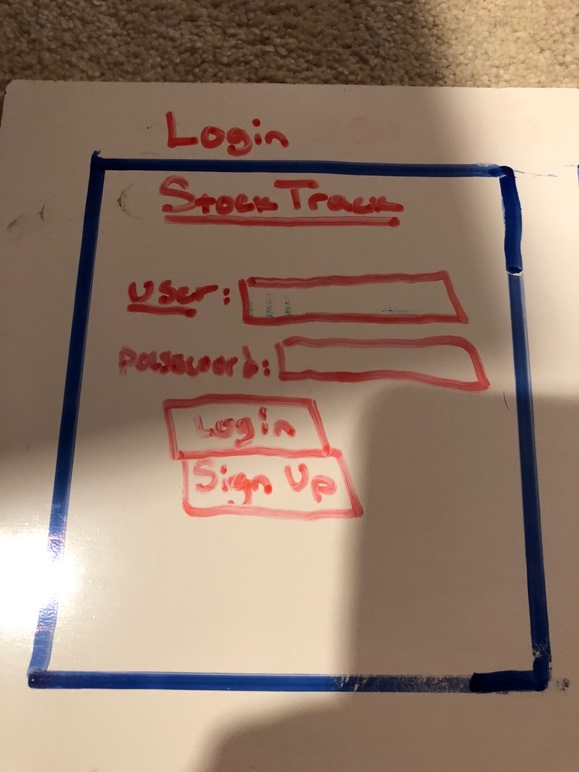 Login
Stock Track
User:
password:
Login
Sign Up